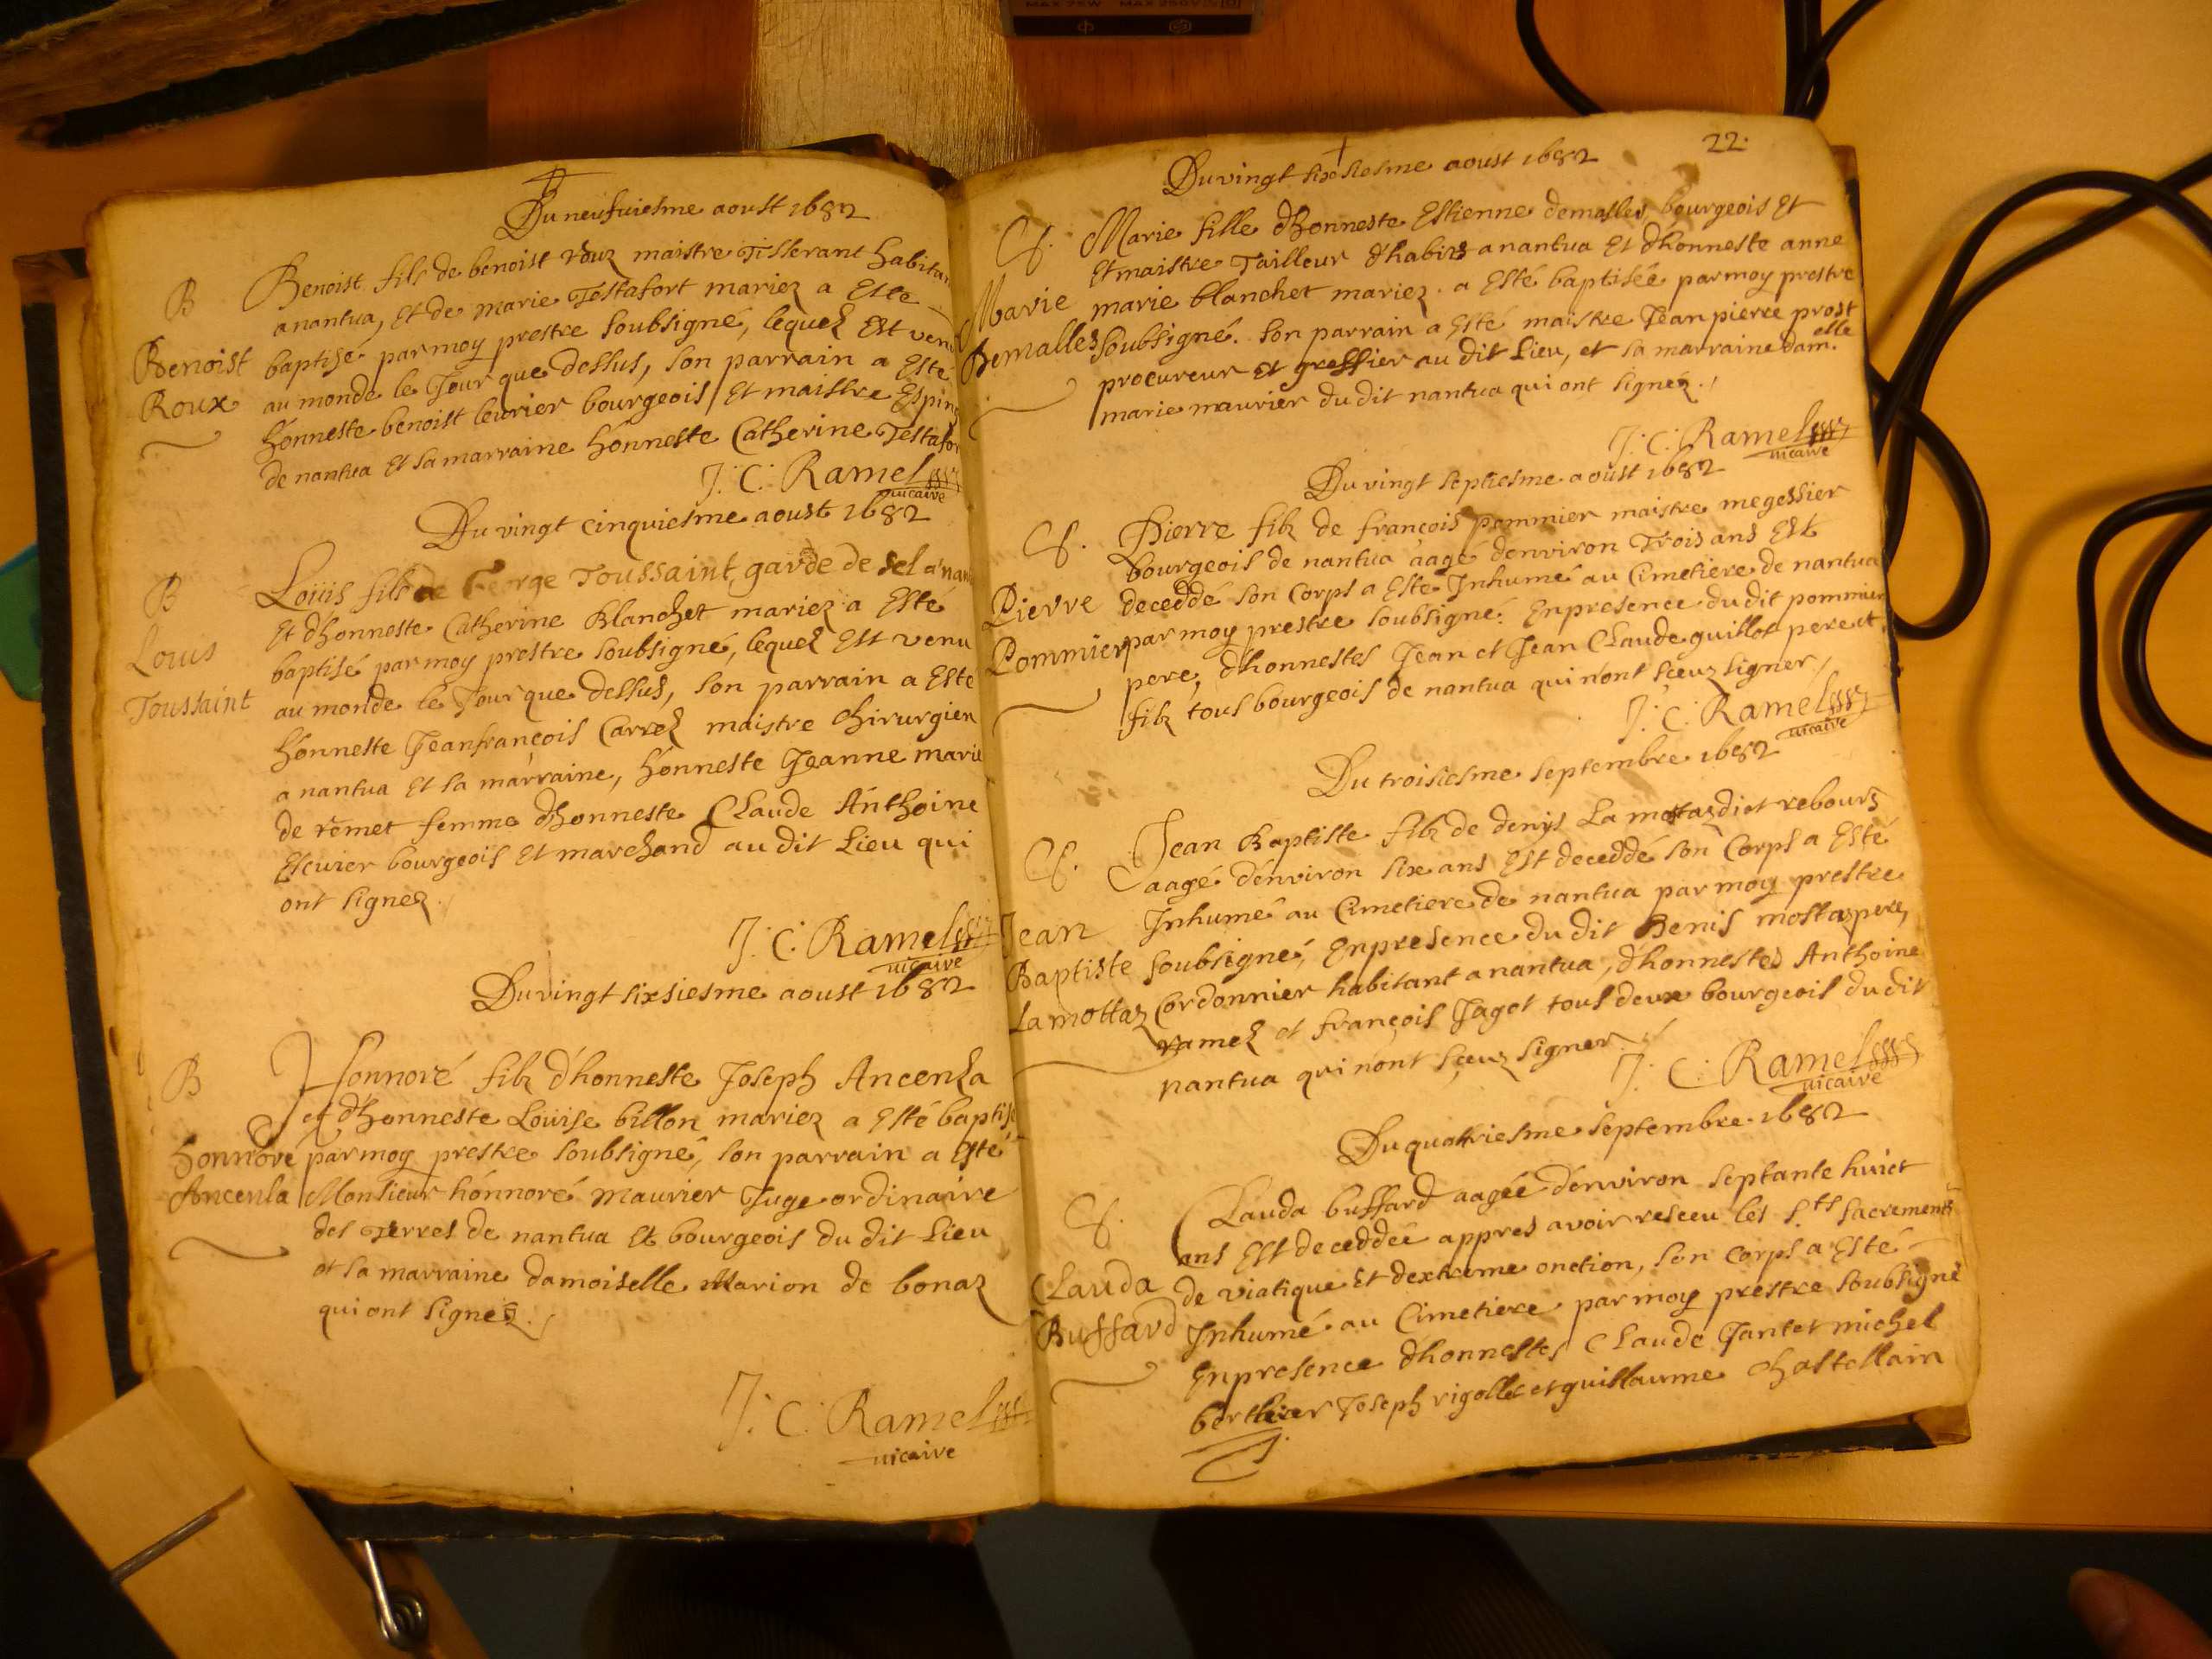 Du neufuiesme aoust 1682
B
Benoist fils de benoist roux maistre Tisserant habitan
Benoist
Roux
a nantua, Et de marie Testafort mariez a Esté
baptisé par moy prestre soubsigné, lequel Est venu
au monde le Jour que dessus, son parrain a Esté
honneste benoist leurier bourgeois Et maistre Esping
de nantua Et sa marraine honneste Catherine Testafor
J. C. Ramel
uicaire
Du vingt cinquiesme aoust 1682
B
Louis
Toussaint
Loüis fils de George Toussaint, garde de sel a nan
Et d'honneste Catherine Blanchet mariez a Esté
baptisé par moy prestre soubsigné, lequel Est venu
au monde le Jour que dessus, son parrain a Esté
honneste Jeanfrançois Carrel maistre chirurgien
a nantua Et sa marraine, honneste Jeanne marie
de remet femme d'honneste Claude Anthoine
Escuier bourgeois Et marchand au dit Lieu qui
ont signez.
J. C. Ramel
uicaire
Du vingt sixsiesme aoust 1682
B
honnoré
Ancenla
Honnoré filz d'honneste Joseph Ancenla
et d'honneste Loüise billon mariez a Esté baptisé
par moy prestre soubsigné, son parrain a Esté
Monsieur honnoré maurier Juge ordinaire
des Terres de nantua Et bourgeois du dit Lieu
et sa marraine damoiselle Marion de bonaz
qui ont signez.
J. C. Ramel
uicaire
22.
Du vingt sixsiesme aoust 1682
Marie
Demalles
Marie fille d'honneste Estienne demalles, bourgeois Et
Et maistre Tailleur d'habitz a nantua Et d'honneste anne
marie blanchet mariez. a Esté baptisée par moy prestre
soubsigné. son parrain a Esté maistre Jean pierre prost
procureur Et greffier au dit Lieu, et sa marraine dam.elle
marie maurier du dit nantua qui ont signéz.
J. C. Ramel
uicaire
Du vingt septiesme aoust 1682
Pierre
Pommier
Pierre filz de françois pommier maistre megessier
bourgeois de nantua aagé d'environ Trois ans Est
deceddé son Corps a Esté Inhumé au Cimetiere de nantua
par moy prestre soubsigné. En presence du dit pommier
pere, d'honnestes Jean et Jean Claude guillot pere et
filz tous bourgeois de nantua qui n'ont sceuz signer.
J. C. Ramel
uicaire
Du troisiesme septembre 1682
Jean
Baptiste
La mottaz
Jean Baptiste filz de denys La mottaz dict rebours
aagé d'environ six ans Est deceddé son Corps a Esté
Inhumé au Cimetiere de nantua par moy prestre
soubsigné, En presence du dit Denis mottaz pere,
Cordonnier habitant a nantua, d'honnestes Anthoine
ramel et françois Jagot tous deux bourgeois du dit
nantua qui n'ont sceuz signer.
J. C. Ramel
uicaire
Du quattriesme septembre 1682
Clauda
Buffard
Clauda buffard aagée d'environ septante huict
ans Est deceddée appres avoir resceu les S.ts sacrements
de viatique Et d'extreme onction, son Corps a Esté
Inhumé au Cimetiere par moy prestre soubsigné
En presence d'honnestes Claude Jantet michel
berthier Joseph rigollet et guillaume chastellain